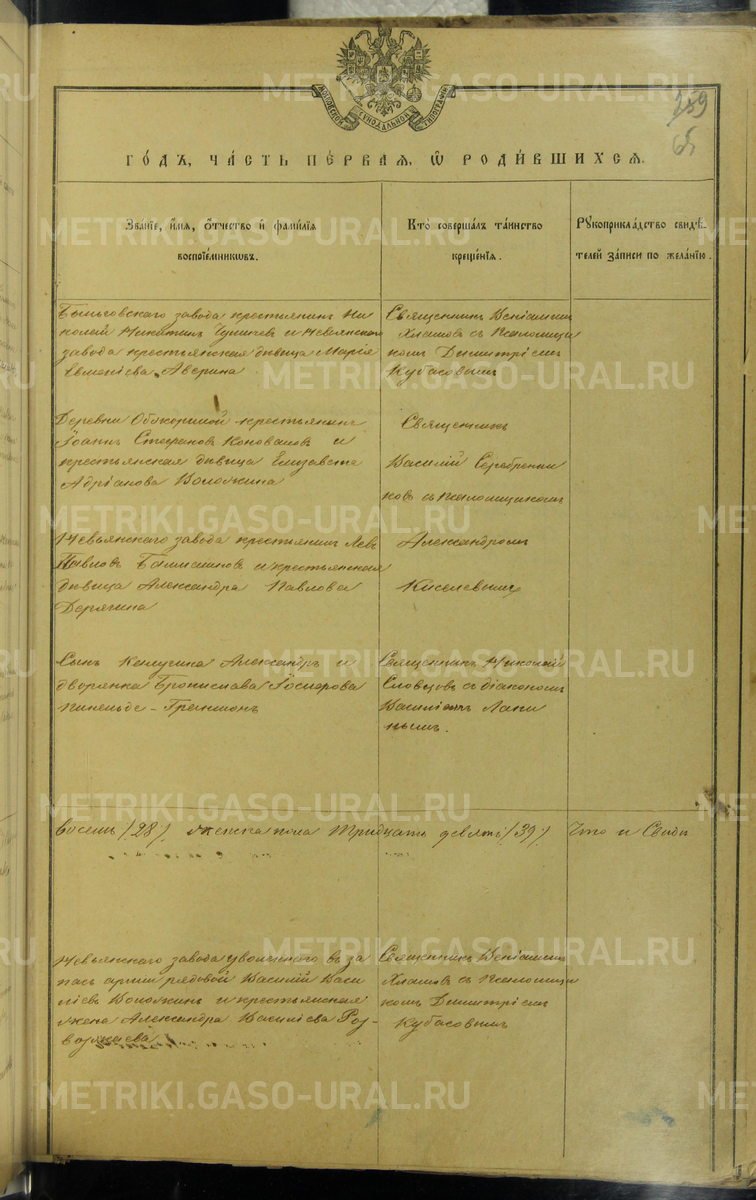 METRIKI.GASO-URAL.RU
159
65
МОСКОВСКОЙ СѴНОДАЛЬНОЙ ТИПОГРАФІИ
ГО́ДЪ, ЧА́СТЬ ПЕ́РВАЯ, Ѡ҆ РОДИ́ВШИХСЯ.
Зва́нїе, и҆́мя, ѻ҆́тчество и҆ фами́лїя
воспрїе́мникѡвъ.
Кто̀ соверша́лъ та́инство
креще́нїя.
Рꙋкоприкла́дство свидѣ́-
телей за́писи по жела́нїю.
Быньговскаго завода крестьянинъ Ни
колай Никитинъ Чуличевъ и Невьянскаго
завода крестьянская дѣвица Марія
Евменіева Аверина
Священникъ Веніаминъ
Хламовъ съ Псаломщи
комъ Димитріемъ
Кубасовымъ
Деревни Обжориной крестьянинъ
Іоаннъ Стефановъ Коноваловъ и
крестьянская дѣвица Елизавета
Адріанова Воложина
Священникъ
Василій Серебренни
ковъ съ Псаломщикомъ
Невьянскаго завода крестьянинъ Левъ
Павловъ и крестьянская
дѣвица Александра Павлова
Дерягина
Александромъ
Киселевымъ
Сынъ Александръ и
дворянка Бронислава Іосифова
Священникъ Николай
Словцовъ съ діакономъ
Василіемъ Лапи
нымъ.
восемь /28/, женска пола тридцать девять /39/.
Что и Свидѣ
Невьянскаго завода уволеннаго въ за
пасъ арміи рядовой Василій Васи
ліевъ Воложинъ и крестьянская
жена Александра Василіева Роз-
вожаева
Священникъ Веніаминъ
Хламовъ съ Псаломщи
комъ Димитріемъ
Кубасовымъ